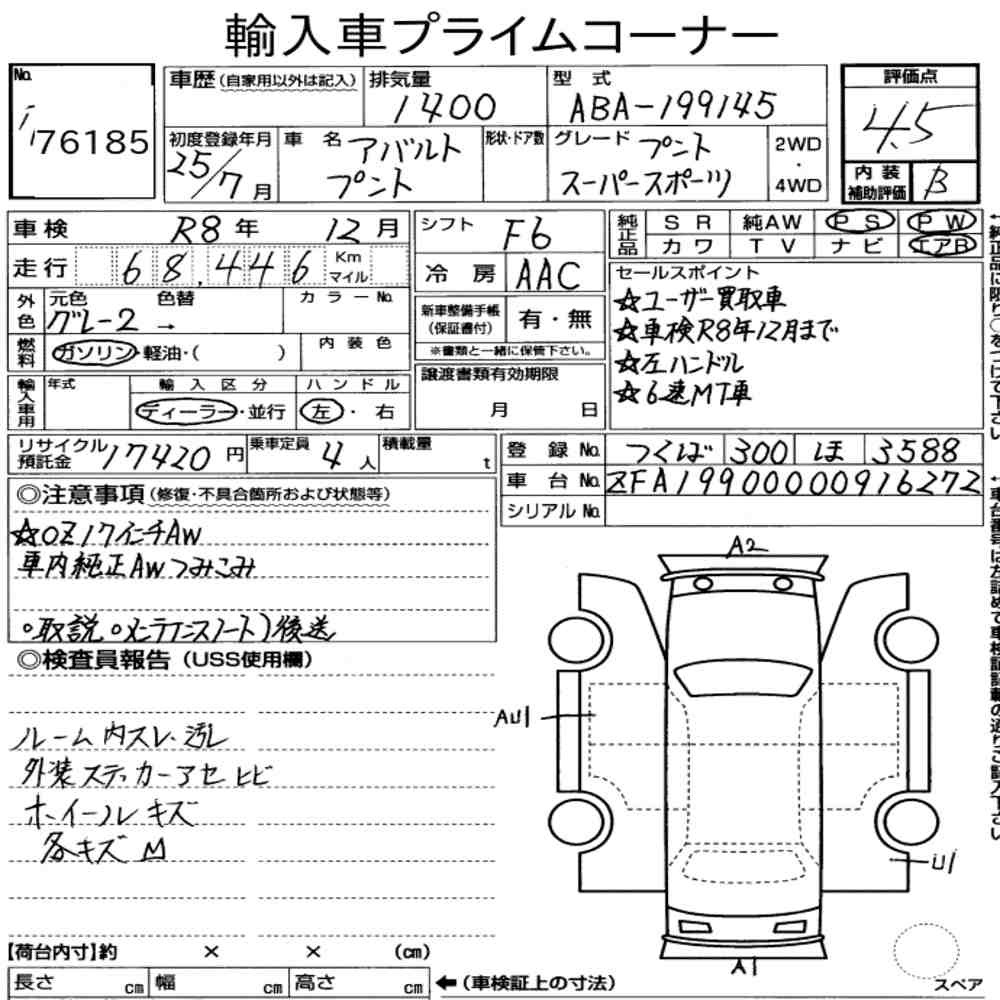 輸入車プライムコーナー
No. i 76185
車歴(自家用以外は記入) 排気量 1400 型式 ABA-199145
評価点 4.5
初度登録年月 25/7月 車名 アバルト プント 形状・ドア数 グレード プント スーパースポーツ 2WD・4WD
内装補助評価 B
車検 R8年 12月
走行 68,446 Km マイル
外色 元色 グレー2 色替 → カラーNo.
燃料 ガソリン・軽油・( ) 内装色
輸入車用 年式 輸入区分 ディーラー・並行 ハンドル 左・右
シフト F6
冷房 AAC
新車整備手帳(保証書付) 有・無
※書類と一緒に保管下さい。
譲渡書類有効期限
月 日
純正品 SR 純AW PS PW
カワ TV ナビ エアB
セールスポイント
☆ユーザー買取車
☆車検R8年12月まで
☆左ハンドル
☆6速MT車
←純正品に限り○をつけて下さい
リサイクル預託金 17420円 乗車定員 4人 積載量 t
登録No. つくば 300 ほ 3588
車台No. ZFA19900000916272
シリアルNo.
←車台番号は左詰めで車検証記載の通りご記入下さい
◎注意事項(修復・不具合箇所および状態等)
☆OZ17インチAW
車内純正AWつみこみ
○取説 ○メンテナンスノート)後送
◎検査員報告(USS使用欄)
ルーム内スレ・汚レ
外装ステッカーアセ ヒビ
ホイールキズ
各キズM
A2
AU1
U1
A1
スペア
【荷台内寸】約 × × (cm)
長さ cm 幅 cm 高さ cm ←(車検証上の寸法)